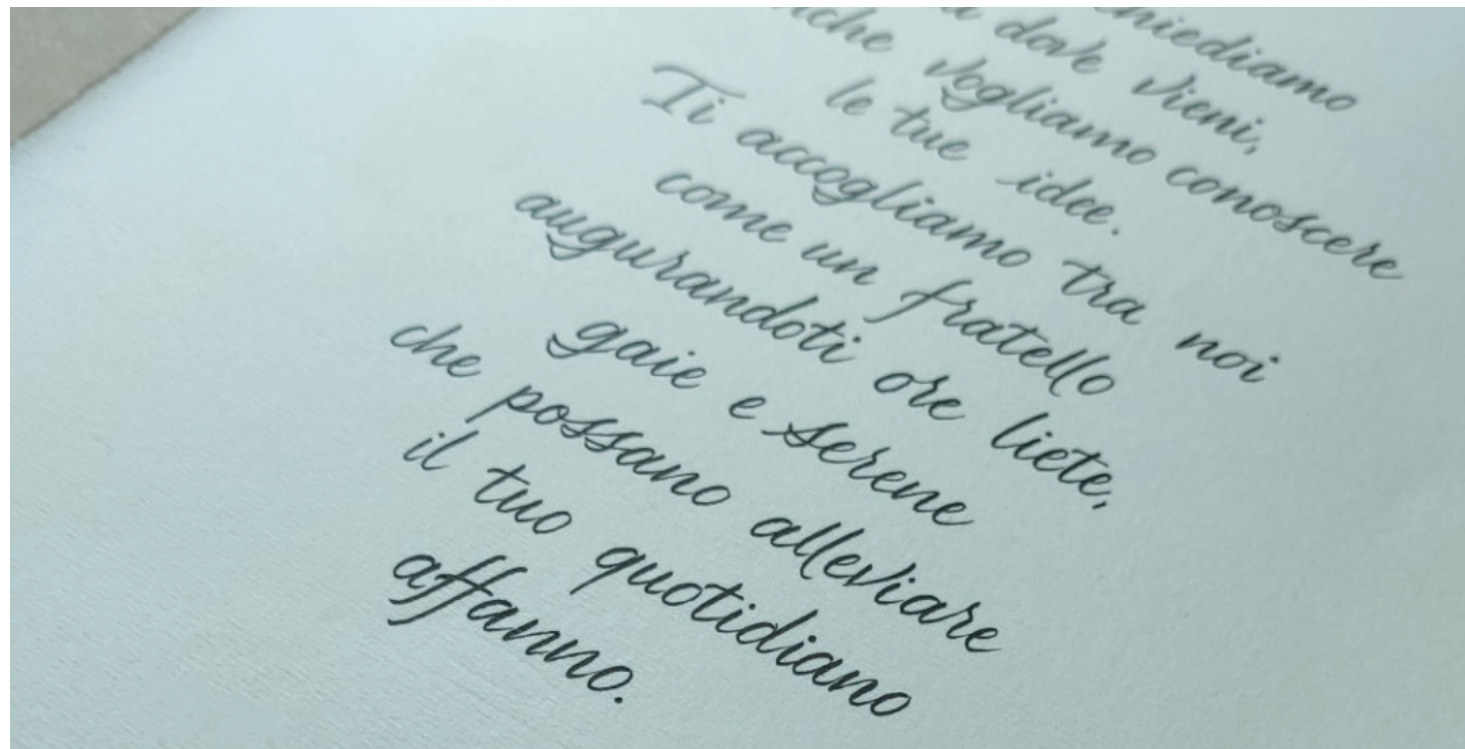 chiediamo
da dove vieni,
vogliamo conoscere
le tue idee.
Ti accogliamo tra noi
come un fratello
augurandoti ore liete,
gaie e serene
che possano alleviare
il tuo quotidiano
affanno.